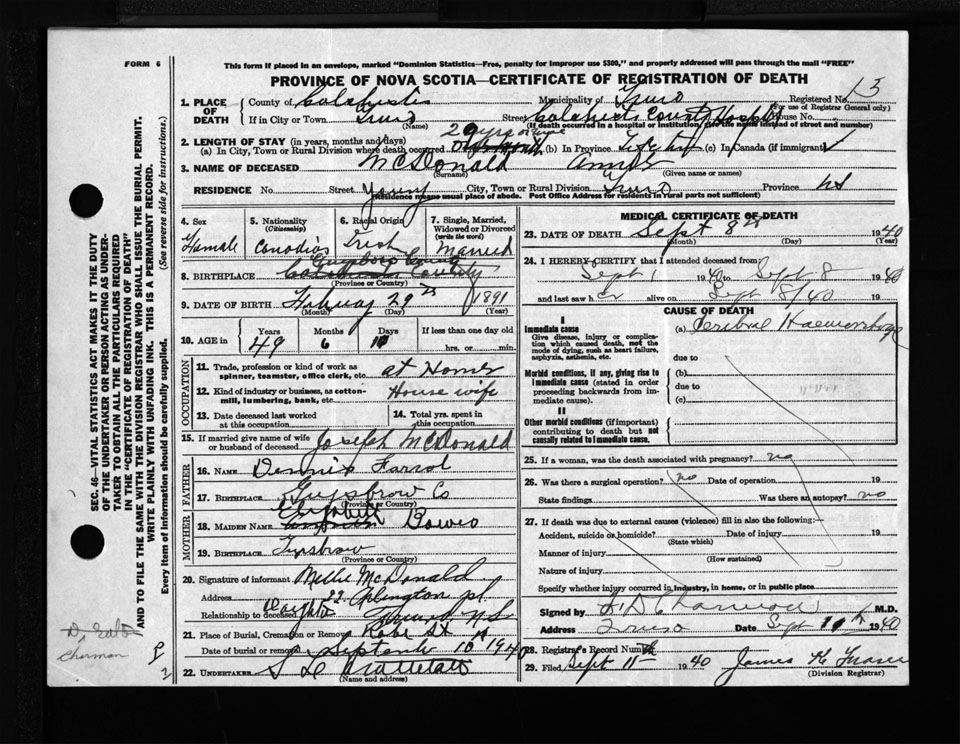 FORM 6
This form if placed in an envelope, marked "Dominion Statistics—Free, penalty for improper use $300," and properly addressed will pass through the mail "FREE"
PROVINCE OF NOVA SCOTIA—CERTIFICATE OF REGISTRATION OF DEATH
SEC. 46—VITAL STATISTICS ACT MAKES IT THE DUTY
OF THE UNDERTAKER OR PERSON ACTING AS UNDER-
TAKER TO OBTAIN ALL THE PARTICULARS REQUIRED
IN THE "CERTIFICATE OF REGISTRATION OF DEATH"
AND TO FILE THE SAME WITH THE DIVISION REGISTRAR WHO SHALL ISSUE THE BURIAL PERMIT.
WRITE PLAINLY WITH UNFADING INK. THIS IS A PERMANENT RECORD.
Every item of Information should be carefully supplied. (See reverse side for instructions.)
1. PLACE OF DEATH County of Colchester Municipality of Truro Registered No. 13
(For use of Registrar General only)
If in City or Town Truro Street Colchester County Hospital House No.
(Name) (If death occurred in a hospital or institution, give the name instead of street and number)
2. LENGTH OF STAY (in years, months and days)
(a) In City, Town or Rural Division where death occurred 29 yrs (b) In Province (c) In Canada (if immigrant)
3. NAME OF DECEASED McDonald Annie
(Surname) (Given name or names)
RESIDENCE No. Street Young City, Town or Rural Division Truro Province NS
(Residence means usual place of abode. Post Office Address for residents in rural parts not sufficient)
4. Sex Female
5. Nationality (Citizenship) Canadian
6. Racial Origin Irish
7. Single, Married, Widowed or Divorced (write the word) Married
8. BIRTHPLACE Guysboro County
(Province or Country)
9. DATE OF BIRTH 29 1891
(Month) (Day) (Year)
10. AGE in Years 49 Months 6 Days If less than one day old hrs. or min.
OCCUPATION
11. Trade, profession or kind of work as spinner, teamster, office clerk, etc. at Home
12. Kind of industry or business, as cotton-mill, lumbering, bank, etc. House wife
13. Date deceased last worked at this occupation
14. Total yrs. spent in this occupation
15. If married give name of wife or husband of deceased Joseph McDonald
FATHER
16. NAME Dennis
17. BIRTHPLACE Guysbrow Co
(Province or Country)
MOTHER
18. MAIDEN NAME Bowes
19. BIRTHPLACE
(Province or Country)
20. Signature of informant Nellie McDonald
Address 22 Arlington pl
Relationship to deceased Daughter Truro N.S
21. Place of Burial, Cremation or Removal Robe St
Date of burial or removal September 10 1940
22. UNDERTAKER
(Name and address)
MEDICAL CERTIFICATE OF DEATH
23. DATE OF DEATH Sept 8th 1940
(Month) (Day) (Year)
24. I HEREBY CERTIFY that I attended deceased from
Sept 1 1940 to Sept 8 1940
and last saw her alive on Sept 8/40 19
CAUSE OF DEATH
I
Immediate cause
Give disease, injury or complication which caused death, not the mode of dying, such as heart failure, asphyxia, asthenia, etc.
(a) Cerebral Haemorrhage
due to
Morbid conditions, if any, giving rise to immediate cause (stated in order proceeding backwards from immediate cause).
(b)
due to
(c)
II
Other morbid conditions (if important) contributing to death but not causally related to immediate cause.
25. If a woman, was the death associated with pregnancy? no
26. Was there a surgical operation? no Date of operation 19
State findings Was there an autopsy? no
27. If death was due to external causes (violence) fill in also the following:—
Accident, suicide or homicide? Date of injury 19
(State which)
Manner of injury
(How sustained)
Nature of injury
Specify whether injury occurred in industry, in home, or in public place
Signed by M.D.
Address Truro Date Sept 1940
28. Registrar's Record Number
29. Filed Sept 11th 1940 James K Fraser
(Division Registrar)